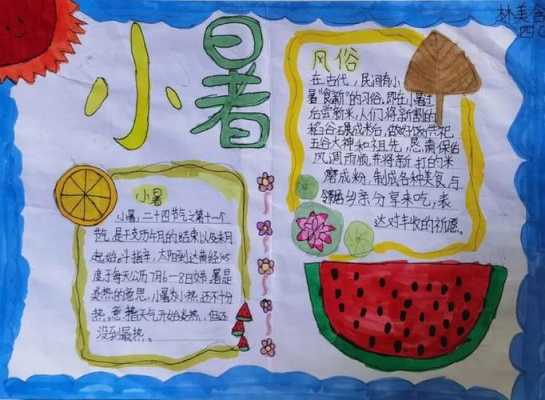 林美含
四
小暑
风俗
在古代，民间有小
暑"食新"的习俗，即在小暑过
后尝新米，人们将新割的
稻谷碾成米后，做好饭供祀
五谷大神和祖先，
风调雨顺，并将新打的米
磨成粉，制成各种美食，与
邻居乡亲分享来吃，表
达对丰收的祈愿。
小暑
小暑，二十四节气之第十一个
节气，是干支历午月的结束以及未月
起始。斗指辛，太阳到达黄经105
度于每天公历7月6-8日交
炎热的意思，小暑为小热，还不十分
热，意指天气开始炎热，但还
没到最热。